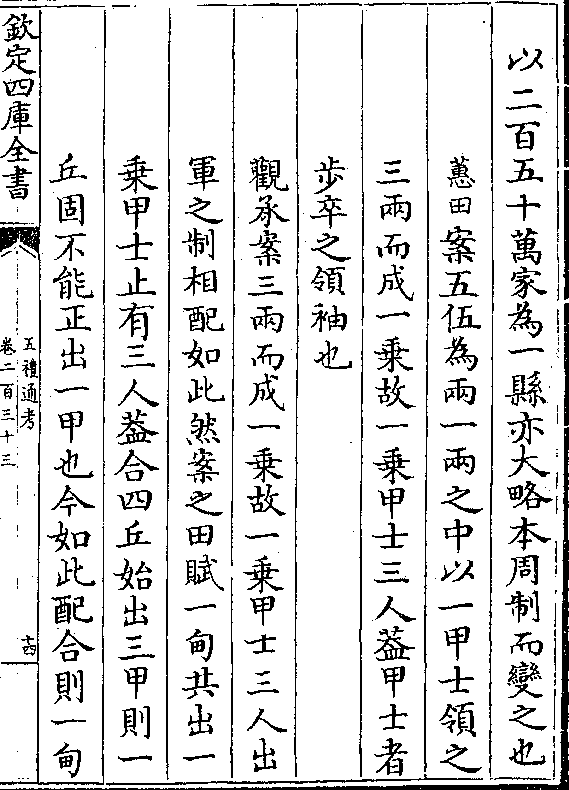 以二百五十萬家為一縣亦大略本周制而變之也
蕙田案五伍為兩一兩之中以一甲士領之
三兩而成一乗故一乗甲士三人葢甲士者
步卒之領袖也
觀承案三兩而成一乗故一乗甲士三人出
軍之制相配如此然案之田賦一甸共出一
乗甲士止有三人葢合四丘始出三甲則一
丘固不能正出一甲也今如此配合則一甸
欽定四庫全書
五禮通考
卷二百三十三
十四